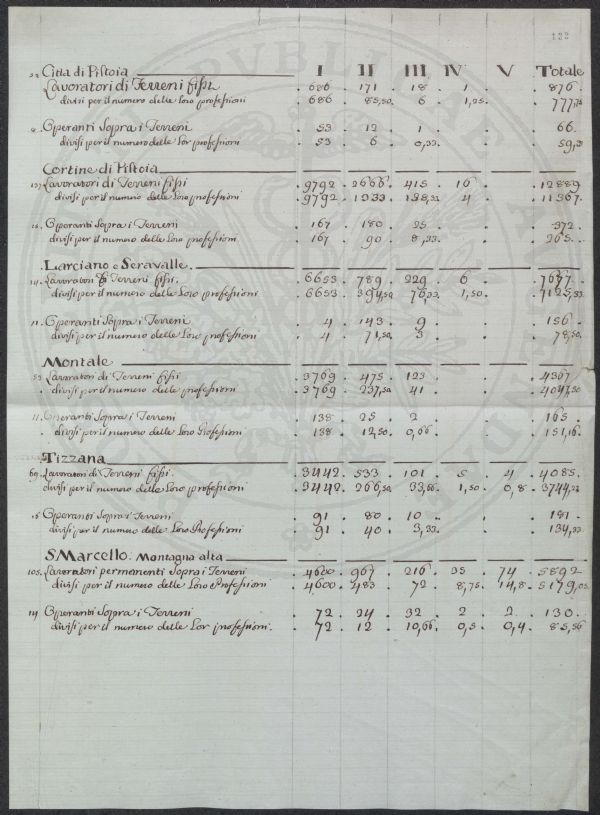 122
Citta di Pistoia I II III IV V Totale
Lavoratori di Terreni fissi . 686 . 171 . 18 . 1 . . 876.
divisi per il numero delle loro professioni . 686 . 85,50. 6 . 1,25. . 777,75
8. Operanti Sopra i Terreni . 53 . 12 . 1 . . . 66.
divisi per il numero delle Lor professioni . 53 . 6 . 0,33. . . 59,3
Cortine di Pistoia
Lavoratori di Terreni fissi . 9792 . 2666 . 415 . 16 . . 12889
divisi per il numero delle Loro professioni . 9792 . 1333 . 138,33 . 4 . . 11367.
Operanti Sopra i Terreni . 167 . 180 . 25 . . . 372.
divisi per il numero delle Loro professioni . 167 . 90 . 8,33. . . 265.
Larciano e Seravalle.
Lavoratori di Terreni fissi. . 6653 . 789 . 229 . 6 . . 7677.
divisi per il numero delle Loro professioni . 6653 . 394,50 . 76,33 . 1,50. . 7125,33
11. Operanti Sopra i Terreni . 4 . 143 . 9 . . . 156.
divisi per il numero delle Loro professioni . 4 . 71,50. 3 . . . 78,50.
Montale
53 Lavoratori di Terreni fissi . 3769 . 475 . 123 . . . 4367
divisi per il numero delle Loro professioni . 3769 . 237,50 . 41 . . . 4047,50
11. Operanti Sopra i Terreni . 138 . 25 . 2 . . . 165
divisi per il numero delle Loro Professioni . 138 . 12,50 . 0,66. . . 151,16.
Tizzana
69. Lavoratori di Terreni fissi. . 3442. 533 . 101 . 5 . 4 . 4085.
divisi per il numero delle Loro professioni . 3442. 266,50 . 33,66. 1,50 . 0,8. 3744,22
Operanti Sopra i Terreni . 91 . 80 . 10 . . . 181.
divisi per il numero delle Loro Professioni . 91 . 40 . 3,33. . . 134,33
S. Marcello. Montagna alta
105. Lavoratori permanenti Sopra i Terreni . 4600 . 967 . 216 . 35 . 74 . 5892
divisi per il numero delle Loro Professioni . 4600 . 483 . 72 . 8,75. 14,8. 5179,05
19 Operanti Sopra i Terreni . 72 . 24 . 32 . 2 . 2 . 130.
divisi per il numero delle Lor professioni. . 72 . 12 . 10,66. 0,5 . 0,4 . 85,56